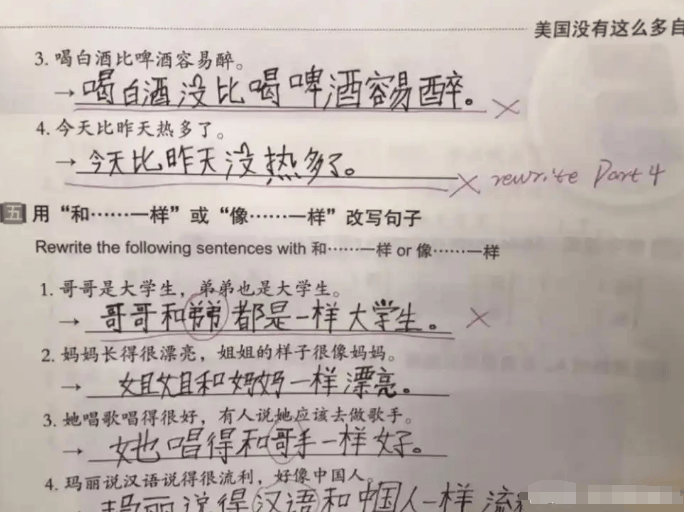 美国没有这么多自
3. 喝白酒比啤酒容易醉。
→ 喝白酒没比喝啤酒容易醉。 ×
4. 今天比昨天热多了。
→ 今天比昨天没热多了。 × rewrite Part 4
五 用“和……一样”或“像……一样”改写句子
Rewrite the following sentences with 和……一样 or 像……一样
1. 哥哥是大学生，弟弟也是大学生。
→ 哥哥和弟弟都是一样大学生。 ×
2. 妈妈长得很漂亮，姐姐的样子很像妈妈。
→ 姐姐和妈妈一样漂亮。
3. 她唱歌唱得很好，有人说她应该去做歌手。
→ 她唱得和哥手一样好。
4. 玛丽说汉语说得很流利，好像中国人。
玛丽说得汉语和中国人一样流